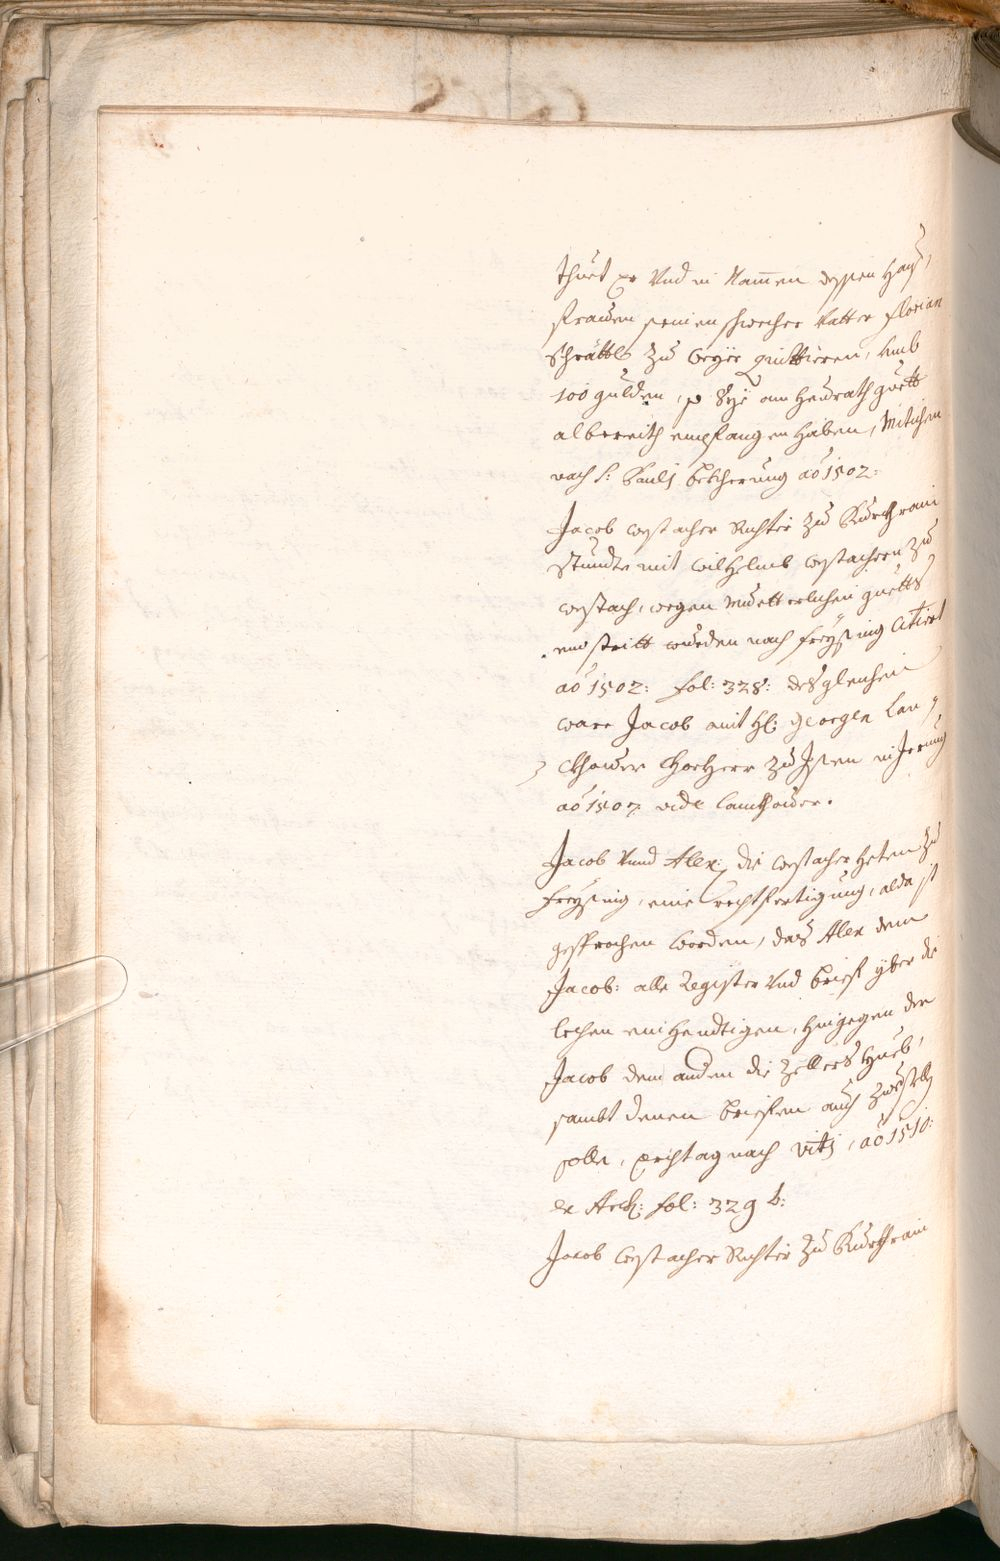 thuet er Vnd in Nam̄en dessen Hauß,
frauen seinen schwecher Vatter Florian
Schrättl zu Weyer quittieren, vmb
100 gulden, so Sye am Heurath guett
albereith empfangen haben, Mitichen
nach S: Paulj bekherung ao 1502:
Jacob Westacher Richter zu Burckhrain
stundte mit Wilhelmb Westachern zu
Westach, wegen Muetterlichen guetts
in stritt wurden nach Freysing Citiert
ao 1502: fol: 328: desgleichen
ware Jacob mit H: Georgen Lan,
ckhouer Chorherr zu Isen in Jrrung
ao 1507 vide Lanckhouer.
Jacob Vnnd Alex: die Westacher heten zu
Freysing, eine rechtfertigung, alda ist
gesprochen worden, das Alex dem
Jacob: alle Register Vnd brief yber die
lechen einhendtigen, hingegen der
Jacob dem andern die Zellers Hueb,
sambt denen briefen auch zuestellen
solle, Erchtag nach Vitj, ao 1510:
ex Arch: fol: 329 b:
Jacob Westacher Richter zu Burckhrain